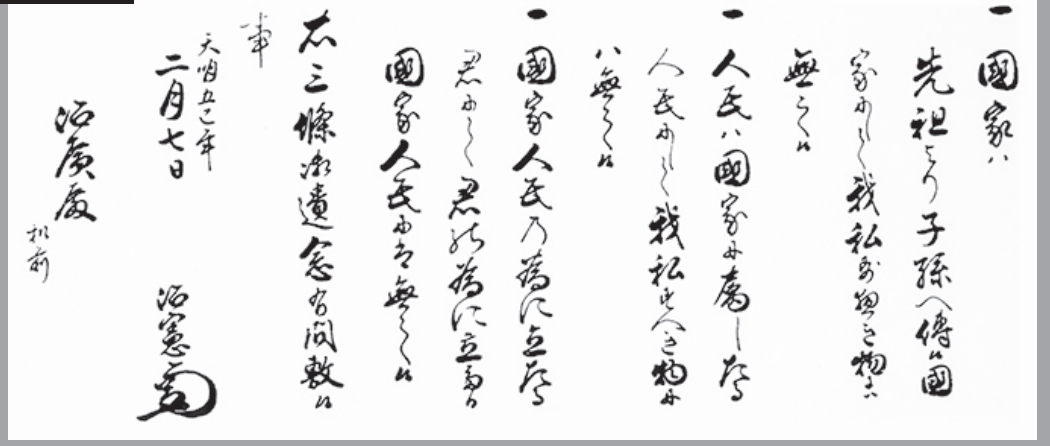 一 國家ハ
先祖より子孫へ傳候國
家にして我私すへき物ニハ
無之候
一 人民ハ國家に属したる
人民にして我私すへき物に
ハ無之候
一 國家人民の為に立たる
君にして君の為に立たる
國家人民には無之候
右三條御遺念有間敷候
事
天明五巳年
二月七日
治憲
治廣殿
机前